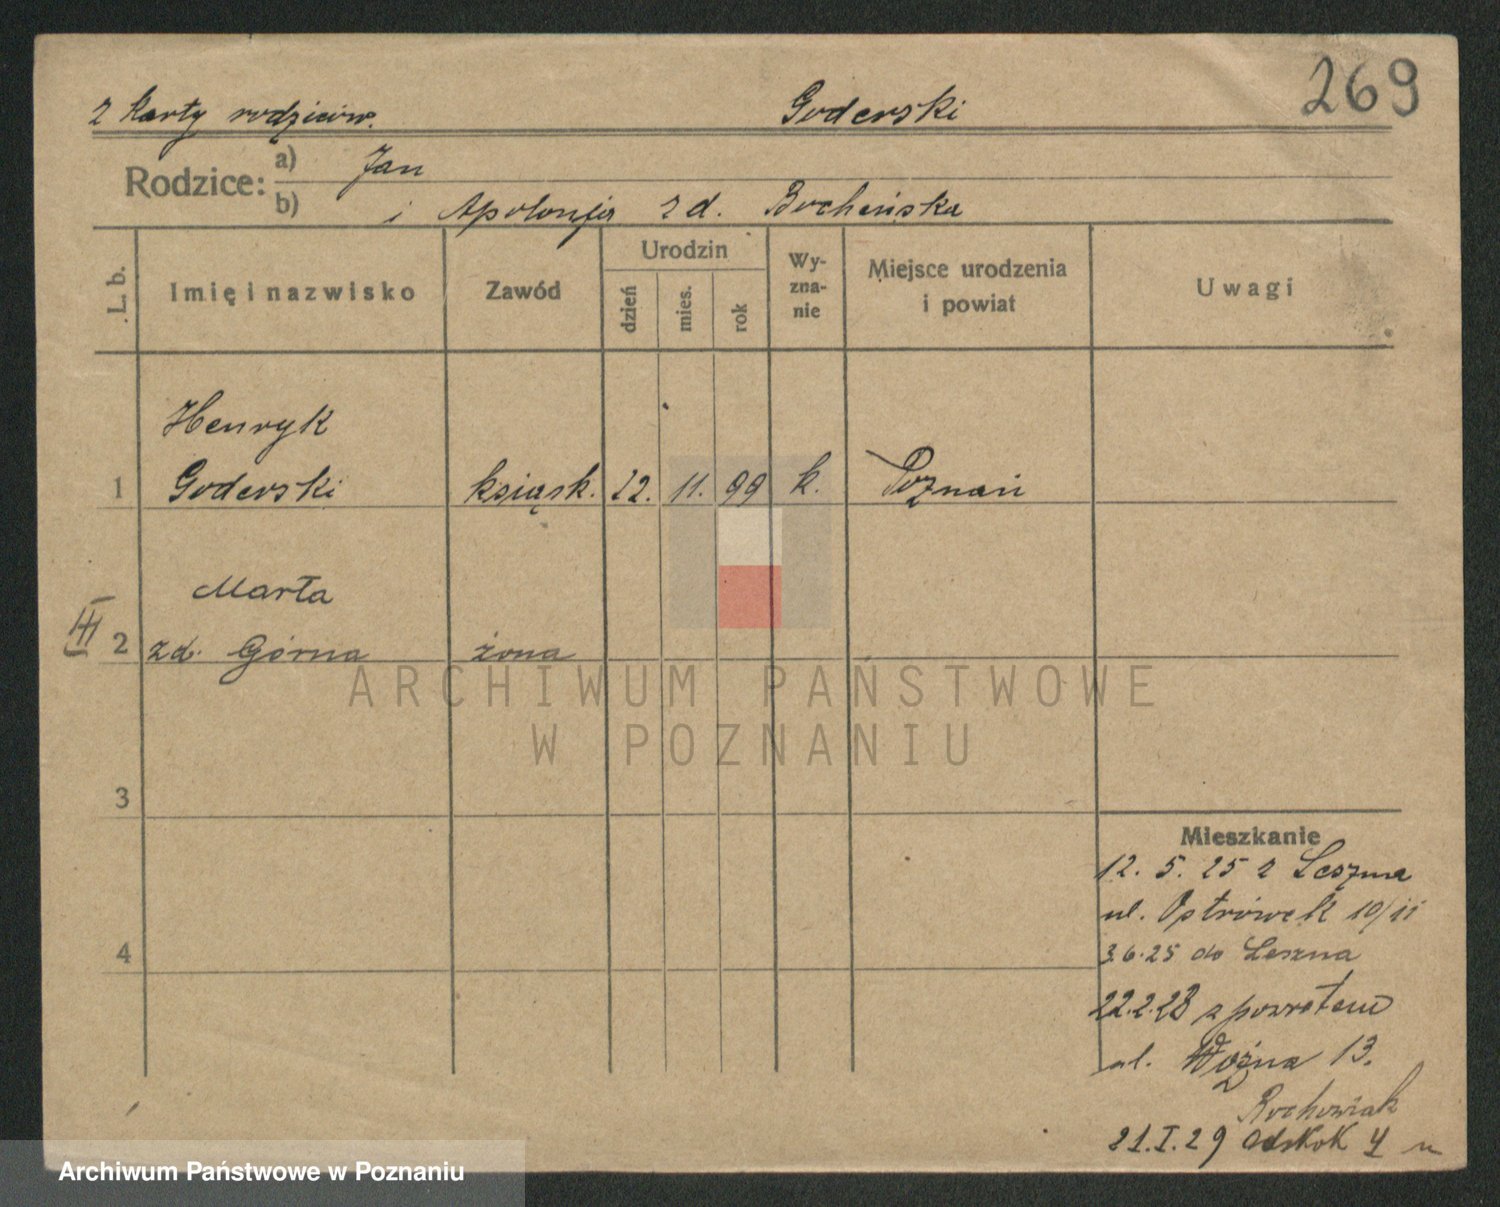 269
z karty rodziców. Goderski
Rodzice: a) Jan
b) i Apolonja z d. Bocheńska
L. b. Imię i nazwisko Zawód Urodzin dzień mies. rok Wy-zna-nie Miejsce urodzenia i powiat Uwagi
Henryk
1 Goderski książk. 22. 11. 99 k. Poznań
Marta
III 2 zd. Górna żona
ARCHIWUM PAŃSTWOWE
W POZNANIU
3
Mieszkanie
12. 5. 25 z Leszna
ul. Ostrówek 10/II
4
3.6.25 do Leszna
22.2.28 z powrotem
ul. Woźna 13.
Rochowiak
21.I.29 4
Archiwum Państwowe w Poznaniu